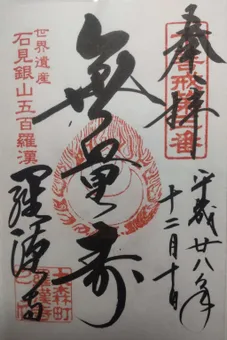 奉拝
平成廿八年
十二月十日
無量寿
世界遺産
石見銀山五百羅漢
羅漢寺
大森町
羅漢寺